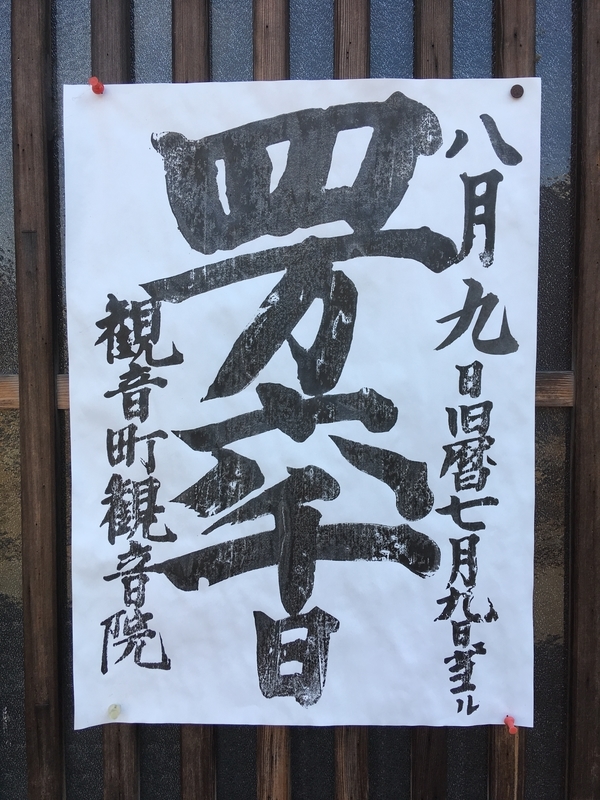 八月九日旧暦七月九日
四万六千日
観音町観音院